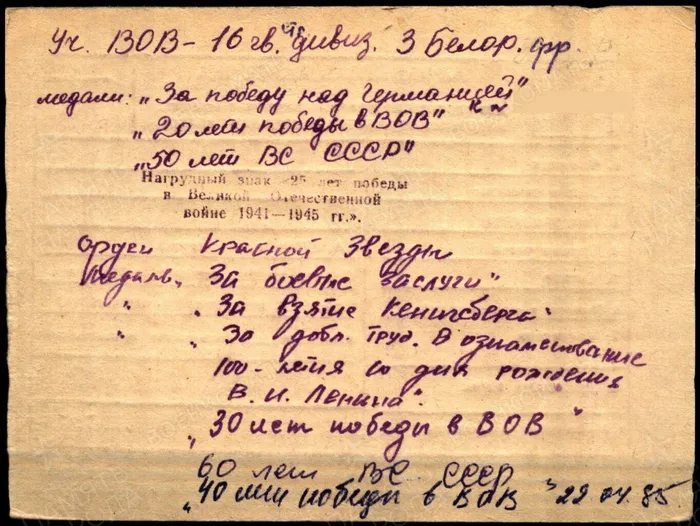 Уч. ВОВ - 16 гв. стр. дивиз. 3 Белор. фр.
медали: „За победу над Германией"
„20 лет победы в ВОВ"
„50 лет ВС СССР"
Нагрудный знак «25 лет победы
в Великой Отечественной
войне 1941—1945 гг.».
Орден Красной Звезды
Медаль „За боевые заслуги"
" „За взятие Кенигсберга"
" „За добл. труд. В ознаменование
100-летия со дня рождения
В. И. Ленина".
„30 лет победы в ВОВ"
60 лет ВС СССР
„40 лет победы в ВОВ" 22.04.85.